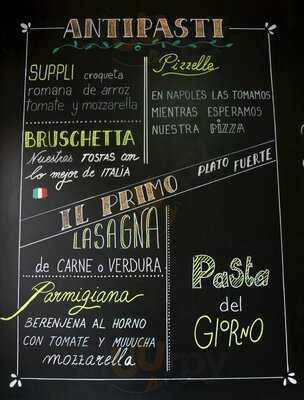 ANTIPASTI
SUPPLI croqueta
romana de arroz
tomate y mozzarella
Pizzelle
EN NAPOLES LAS TOMAMOS
MIENTRAS ESPERAMOS
NUESTRA PIZZA
BRUSCHETTA
Nuestras TOSTAS con
lo mejor de ITALIA
IL PRIMO
PLATO FUERTE
LASAGNA
de CARNE o VERDURA
Parmigiana
BERENJENA AL HORNO
CON TOMATE Y MUUUCHA
mozzarella
Pasta
del
GIORNO